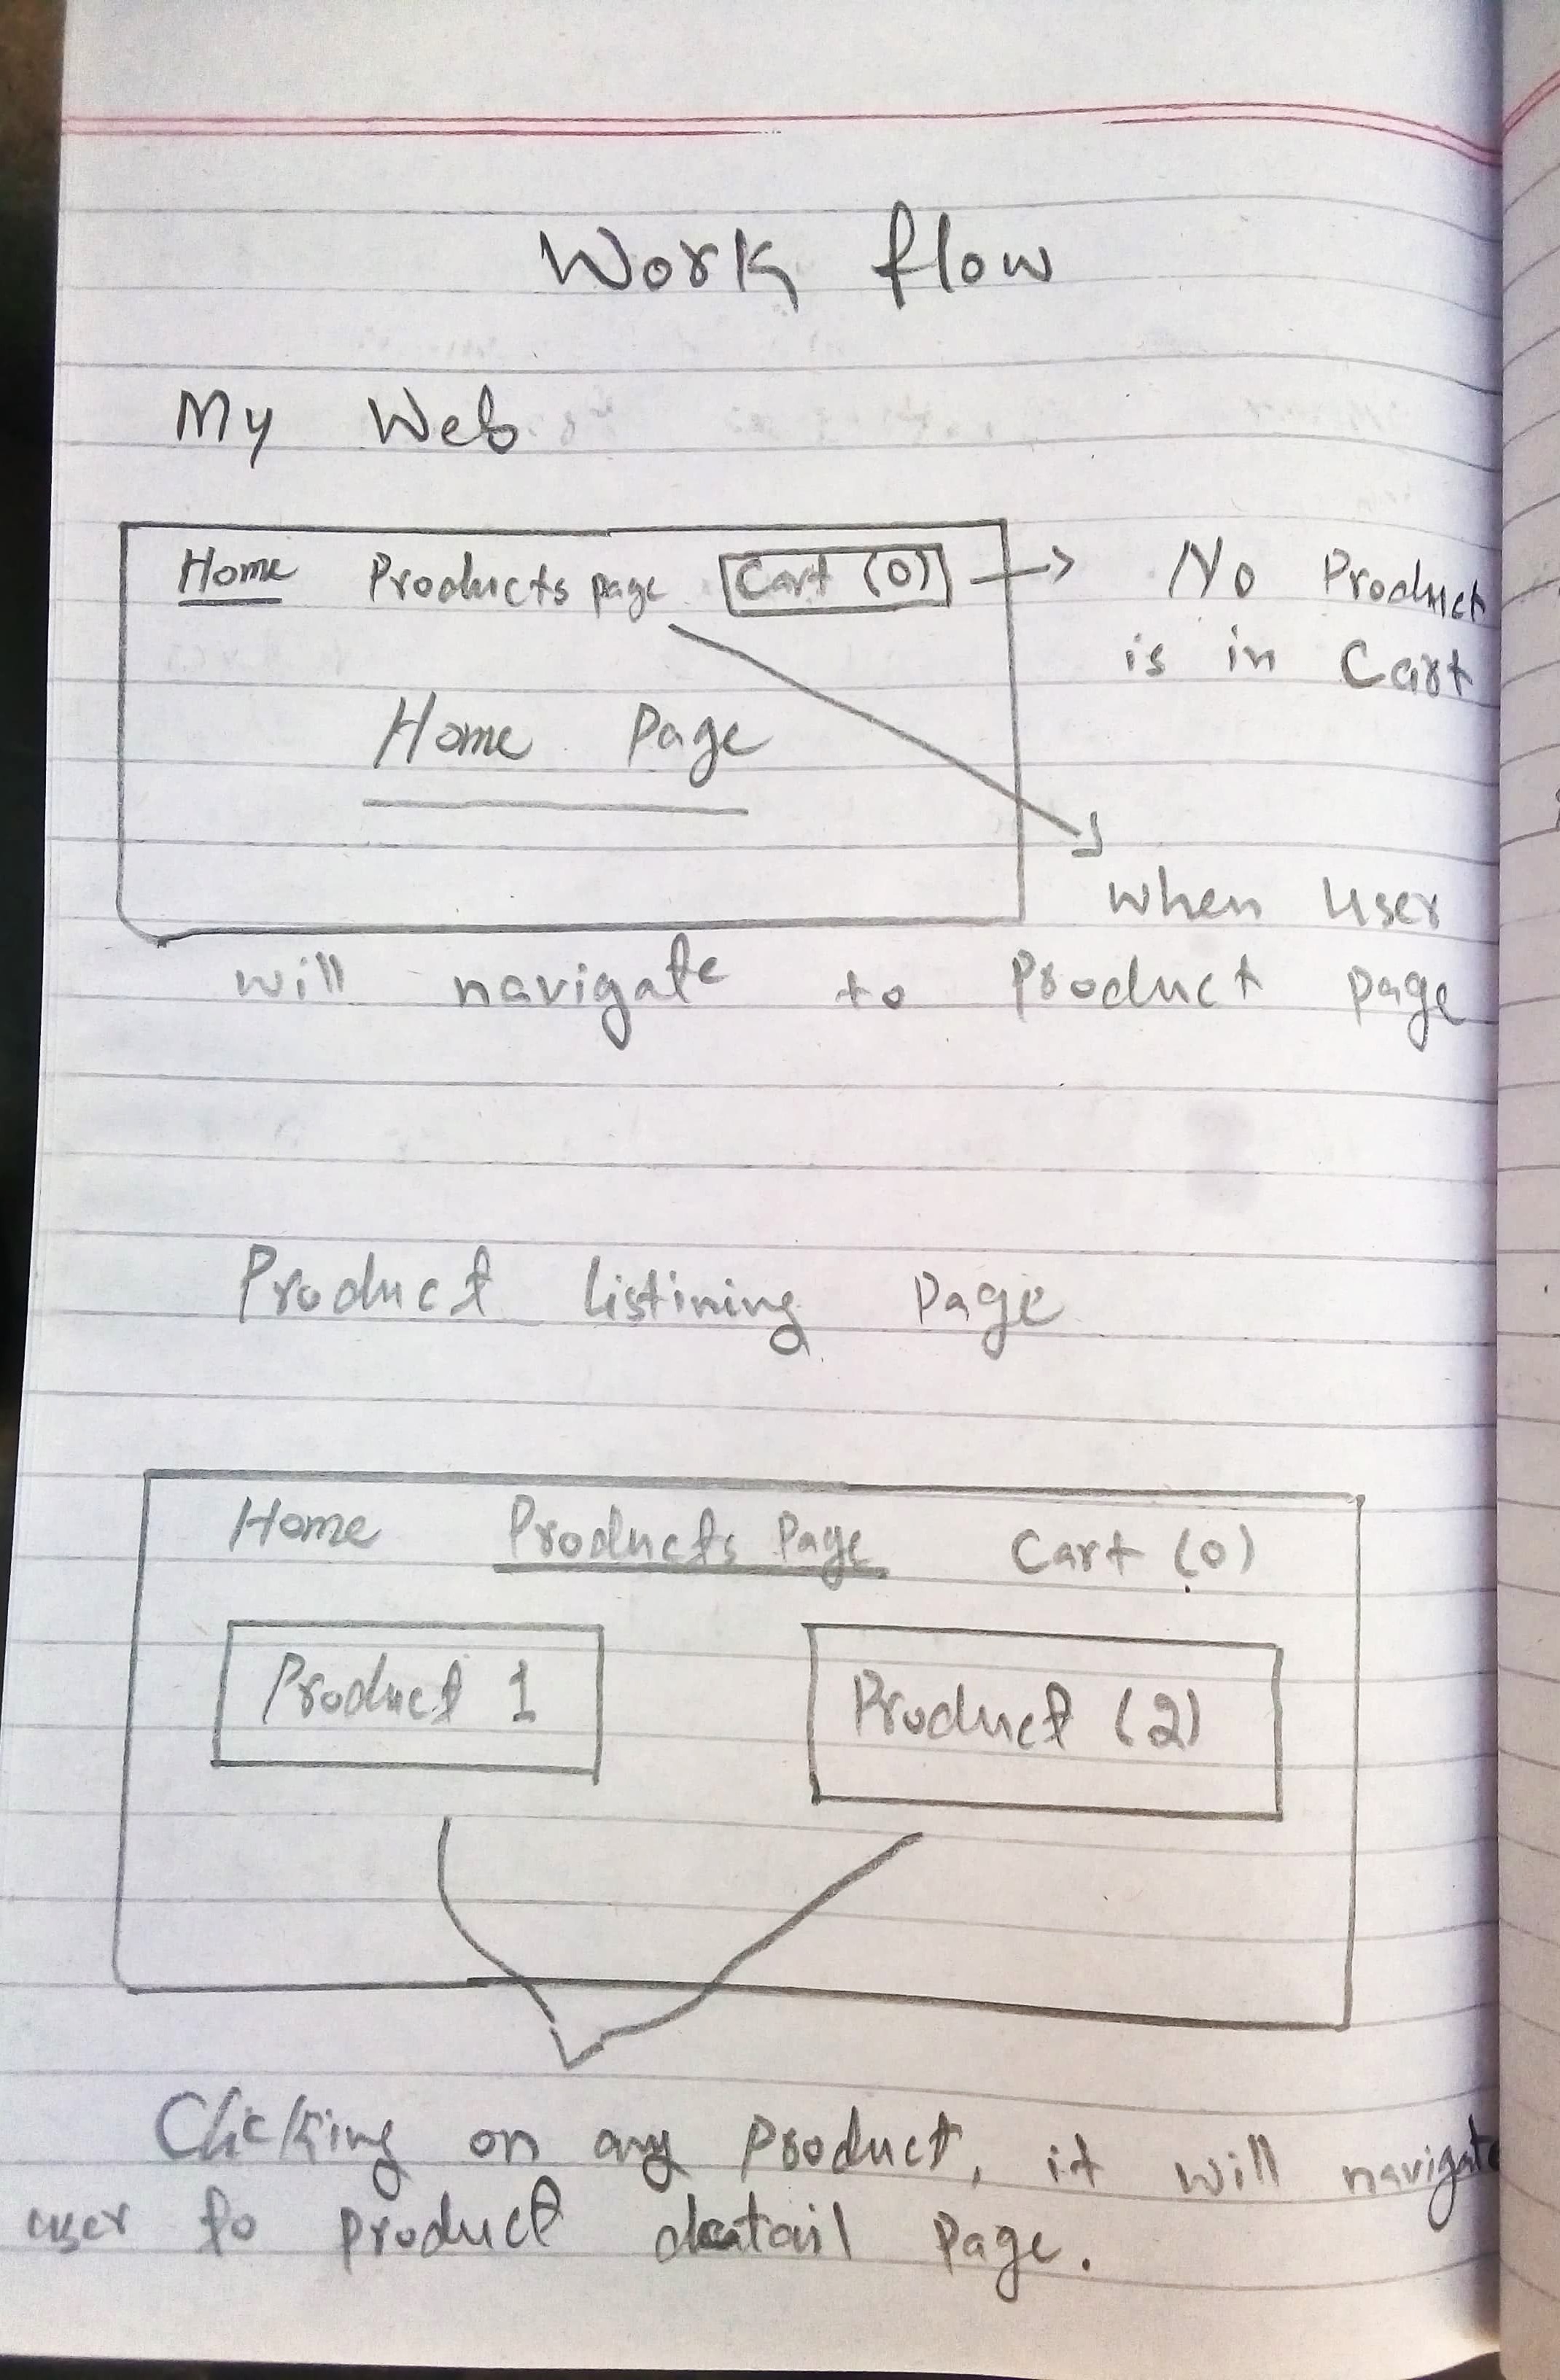 Work flow
My Web
Home Products page Cart (0)
No Product
is in Cart
Home Page
when user
will navigate to Product page
Product listining Page
Home Products Page Cart (0)
Product 1 Product (2)
Clicking on any Product, it will navigate
user to product detail Page.